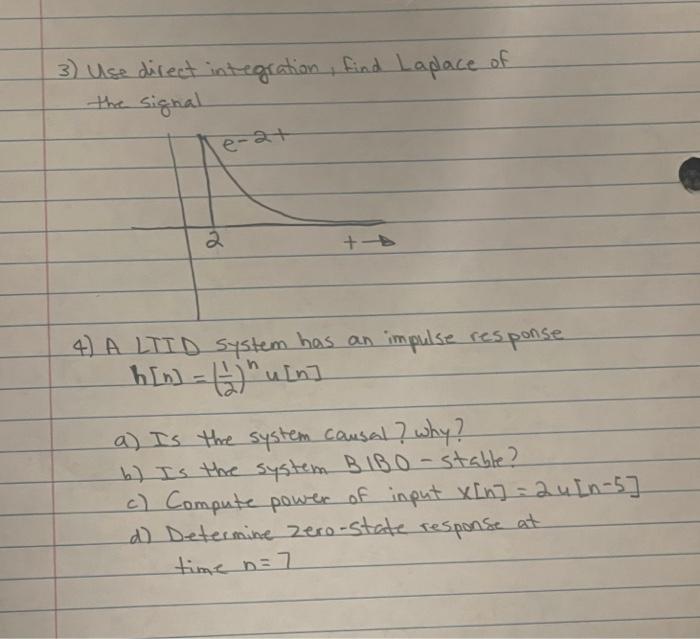 3) Use direct integration, find Laplace of
the signal
e-2t
2
t→
4) A LTID system has an impulse response
h[n] = (1/2)^n u[n]
a) Is the system causal? why?
b) Is the system BIBO-stable?
c) Compute power of input x[n] = 2u[n-5]
d) Determine zero-state response at
time n=7